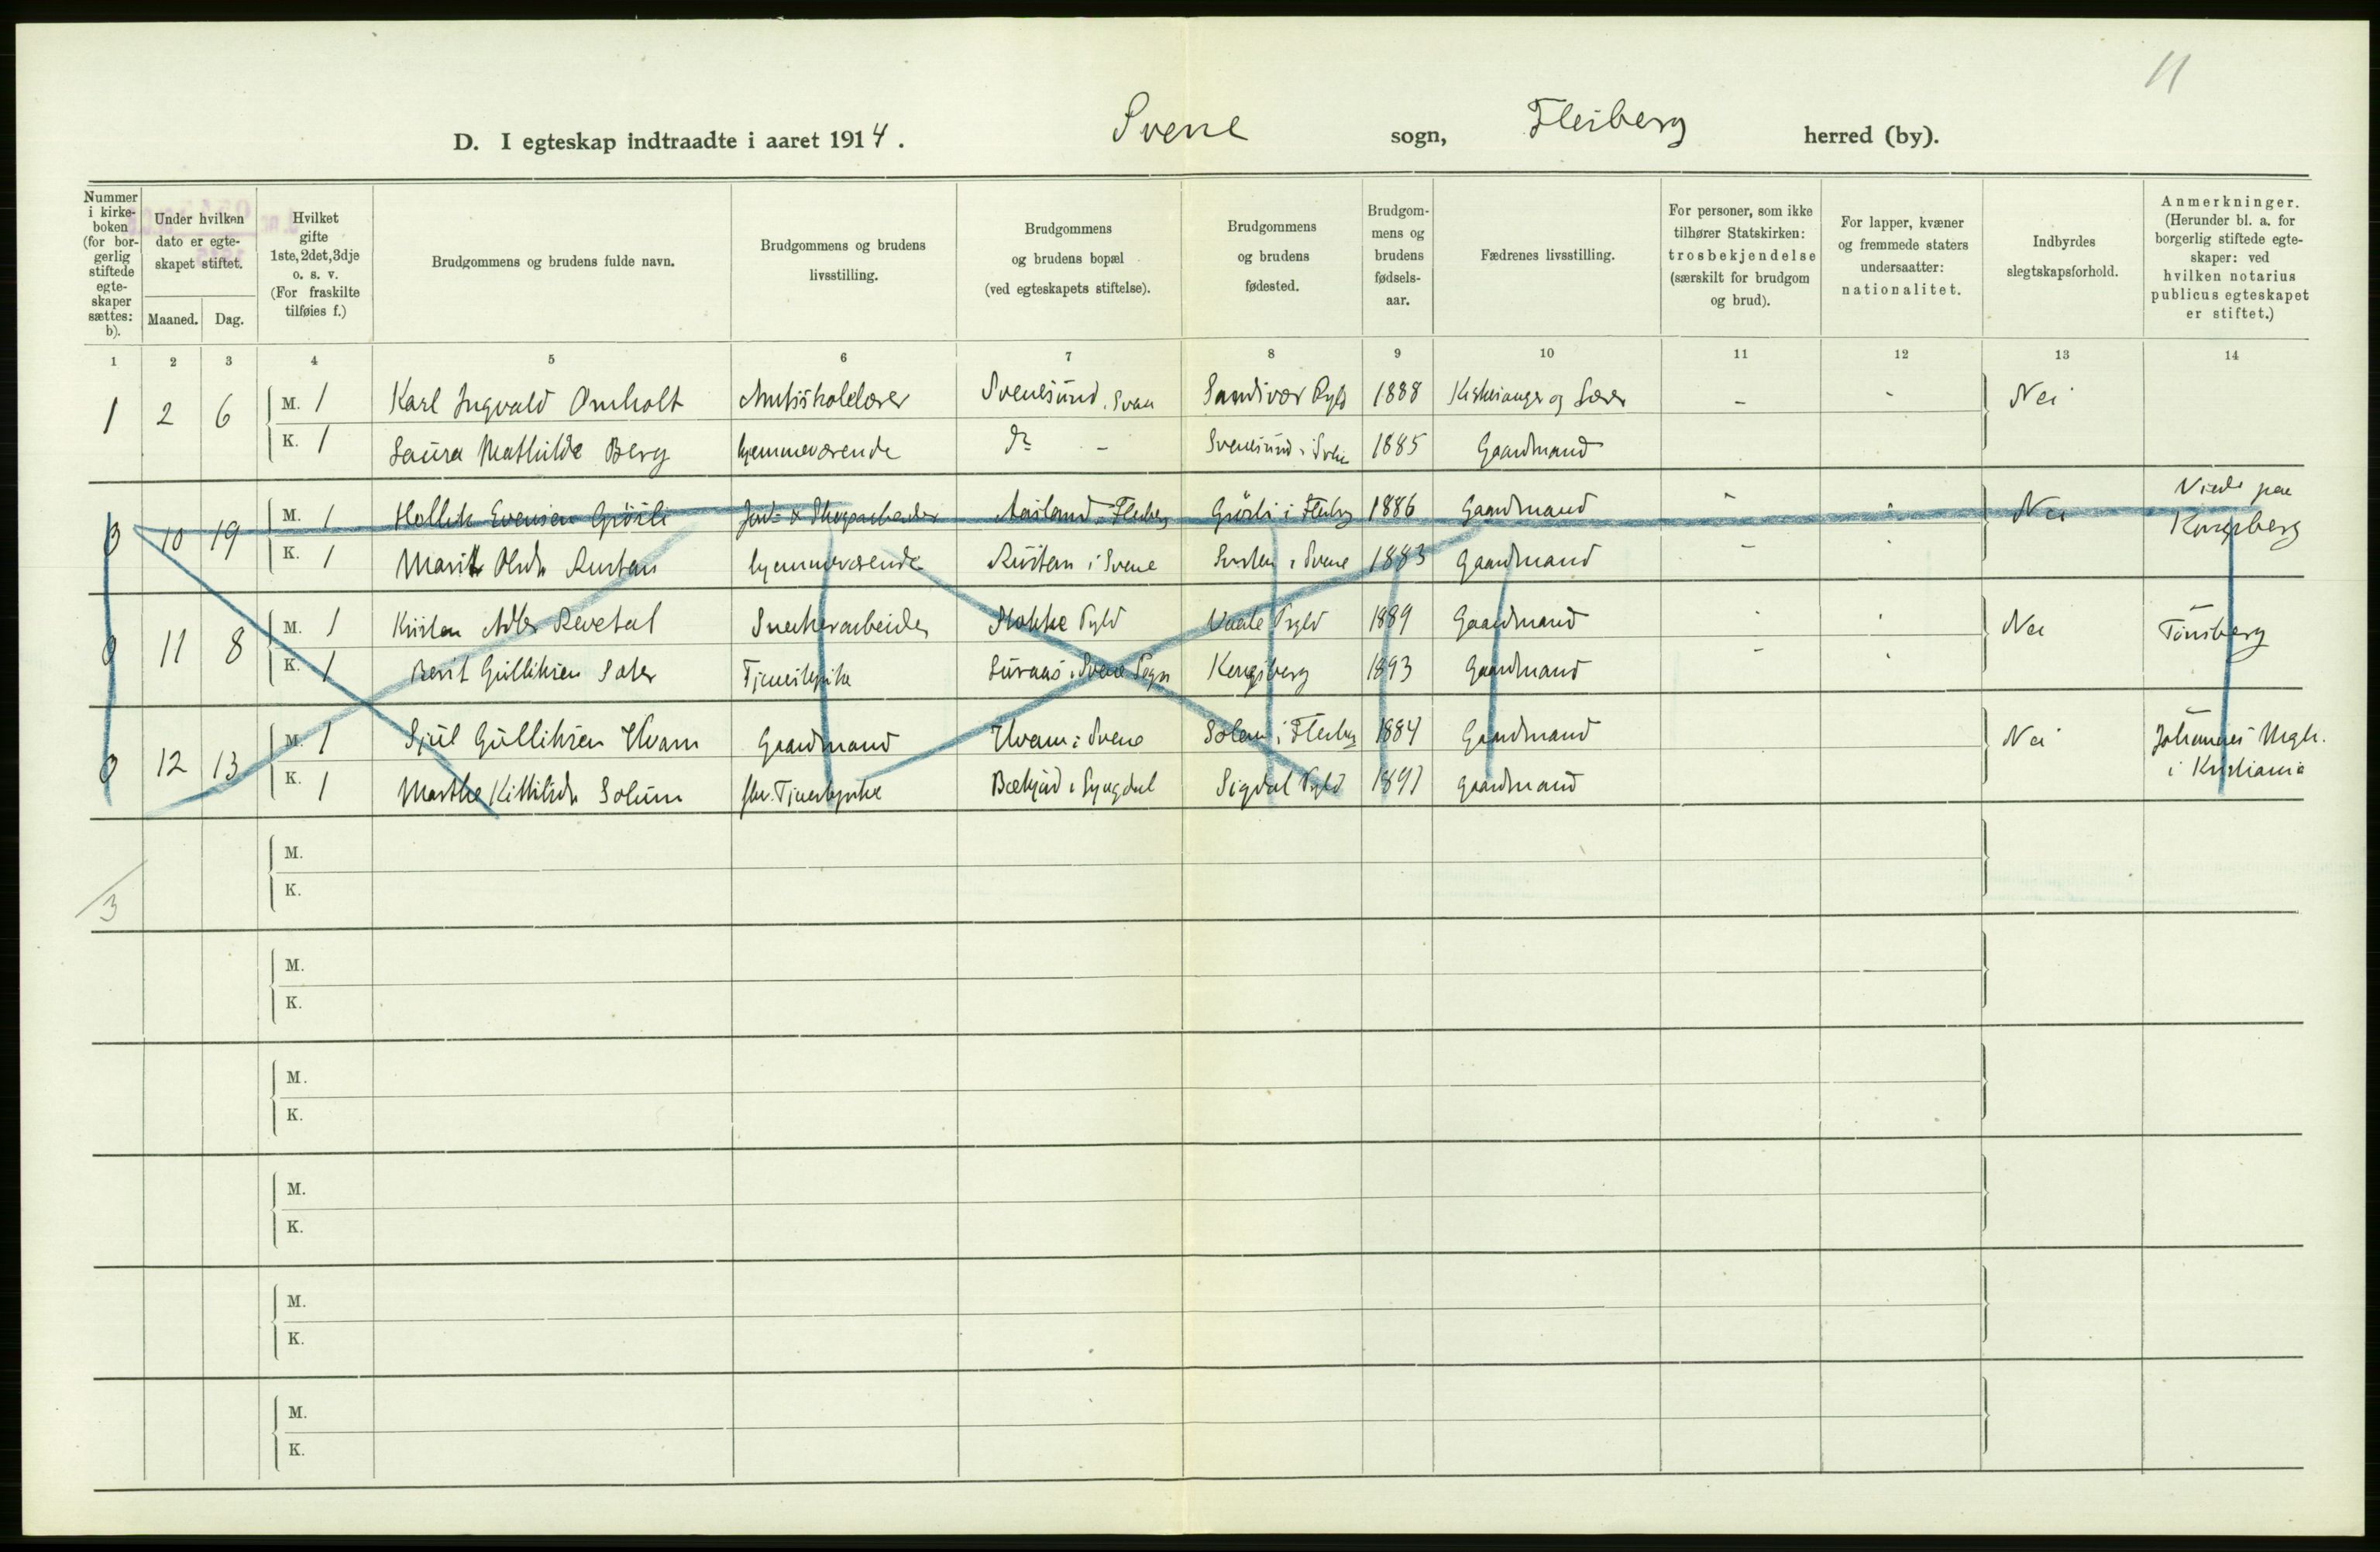 11
D. I egteskap indtraadte i aaret 1914. Svene sogn, Flesberg herred (by).
Nummer i kirke-boken (for bor-gerlig stiftede egte-skaper sættes: b).
Under hvilken dato er egte-skapet stiftet.
Maaned. Dag.
Hvilket gifte 1ste, 2det, 3dje o. s. v. (For fraskilte tilføies f.)
Brudgommens og brudens fulde navn.
Brudgommens og brudens livsstilling.
Brudgommens og brudens bopæl (ved egteskapets stiftelse).
Brudgommens og brudens fødested.
Brudgom-mens og brudens fødsels-aar.
Fædrenes livsstilling.
For personer, som ikke tilhører Statskirken: trosbekjendelse (særskilt for brudgom og brud).
For lapper, kvæner og fremmede staters undersaatter: nationalitet.
Indbyrdes slegtskapsforhold.
Anmerkninger. (Herunder bl. a. for borgerlig stiftede egte-skaper: ved hvilken notarius publicus egteskapet er stiftet.)
1 2 3 4 5 6 7 8 9 10 11 12 13 14
1 2 6 M. 1 Karl Ingvald Omholt Amtsskolelærer Svenesund, Svene Sandsvær Pgld 1888 Kirkesanger og Lærer - - Nei
K. 1 Laura Mathilde Berg hjemmeværende do - Svenesund i Svene 1885 Gaardmand
10 19 M. 1 Hellik Evensen Grøsli Jord- & Skogsarbeider Aasland, Flesberg Grøsli i Flesberg 1886 Gaardmand - - Nei Viede paa Kongsberg
K. 1 Marit Olsdr Rustan hjemmeværende Rustan i Svene i Svene 1883 Gaardmand - -
0 11 8 M. 1 Kristen Adler Revetal Snekkerarbeider Stokke Pgld Vaale Prgld 1889 Gaardmand - - Nei Tönsberg
K. 1 Berit Gulliksen Sater Tjenestepike i Svene Sogn Kongsberg 1893 Gaardmand - -
0 12 13 M. 1 Sjul Gulliksen Hvam Gaardmand Hvam i Svene Solem i Flesberg 1884 Gaardmand Nei Johannes Mgh. i Kristiania
K. 1 Marthe Kittilsdr Solum fhv. Tjenestepike i Lyngdal Sigdal Pgld 1891 Gaardmand
M.
K.
3
M.
K.
M.
K.
M.
K.
M.
K.
M.
K.